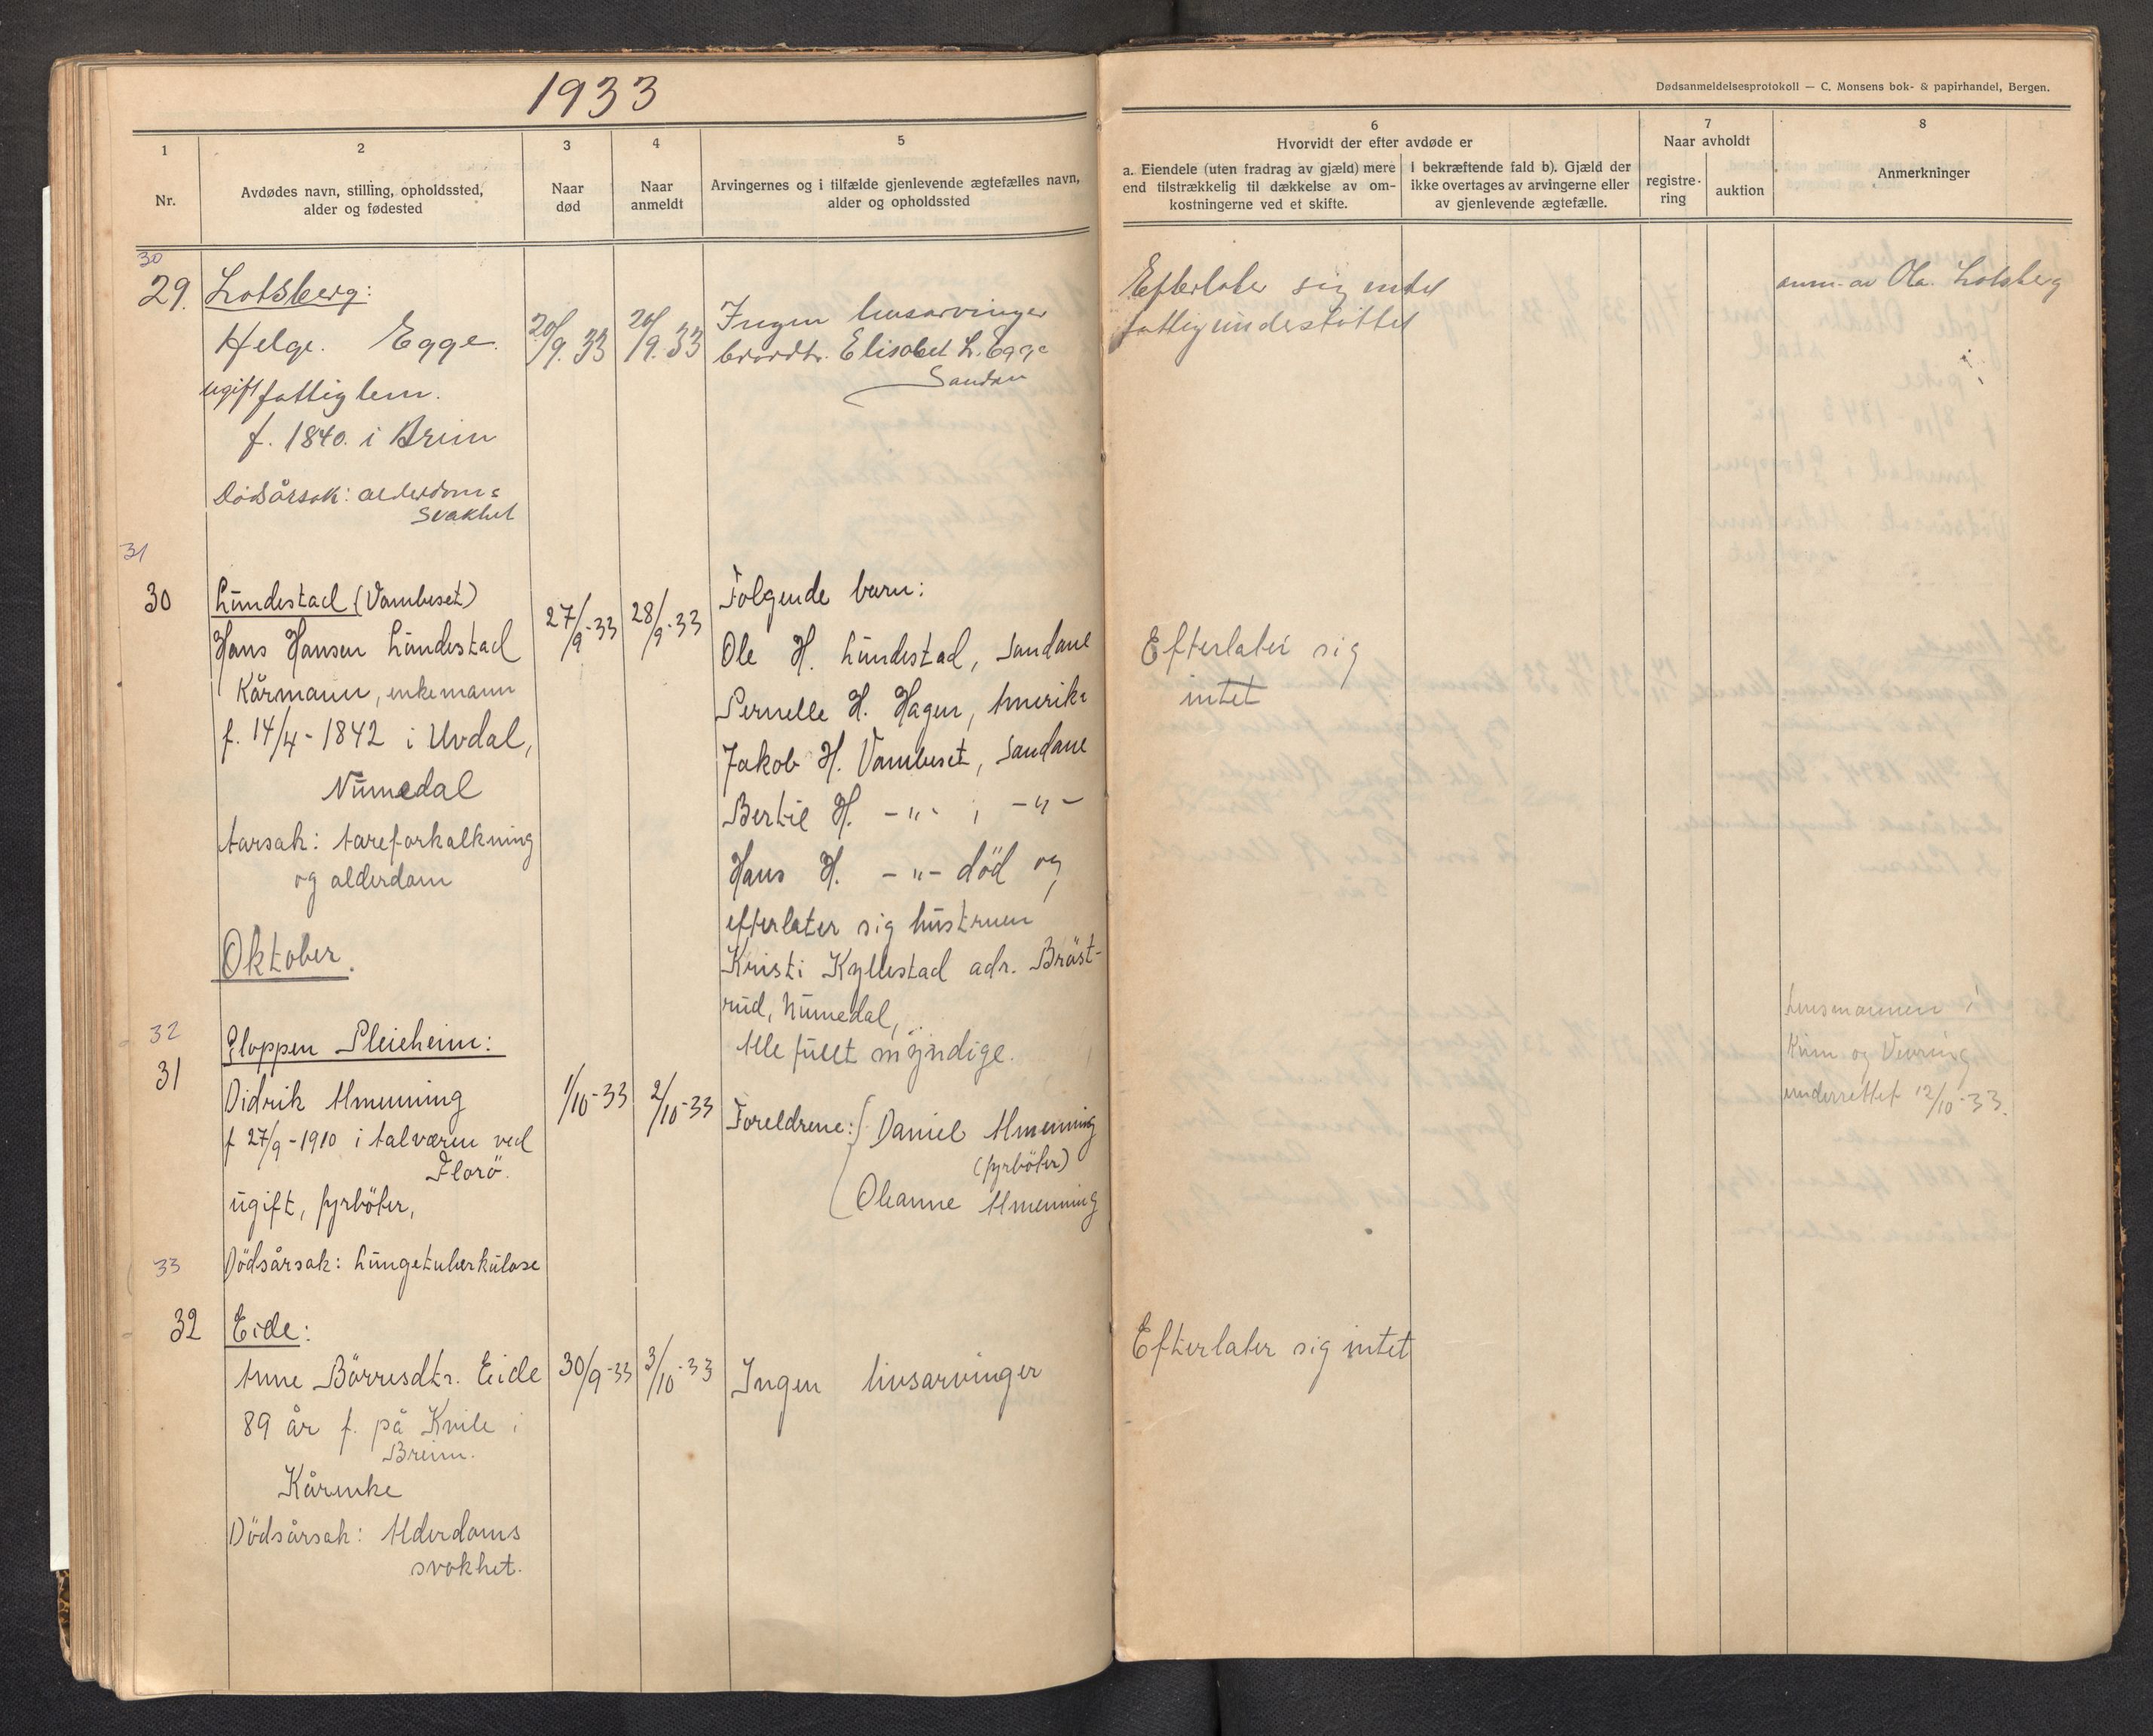 1933
1
2
3
4
5
Nr.
Avdødes navn, stilling, opholdssted,
alder og fødested
Naar
død
Naar
anmeldt
Arvingernes og i tilfælde gjenlevende ægtefælles navn,
alder og opholdssted
30
29.
Lotsberg:
Helge. Egge.
20/9.33
20/9.33
Ingen livsarvinger
brordtr. Elisabet L. Egge
Sandan
ugift fattiglem.
f. 1840. i Breim
Dødsårsak: alderdoms
svakhet
31
30
Lundestad (Vambeset)
Hans Hansen Lundestad
Kårmann, enkemann
f. 14/4-1842 i Uvdal,
Numedal
Aarsak: Aareforkalkning
og alderdom
27/9-33
28/9-33
Følgende barn:
Ole H. Lundestad, Sandane
Pernelle H. Hagen, Amerika
Jakob H. Vambeset, Sandane
Bertil H. -"- , -"-
Hans H. -"- død og
efterlater sig hustruen
Kristi Kyllestad adr. Bråst-
rud, Numedal,
Alle fullt myndige.
Oktober.
32
31
Gloppen Pleieheim:
Didrik Almenning
f 27/9-1910 i Kalvåren ved
Florö.
ugift, fyrböter,
Dödsårsak: Lungetuberkulose
1/10-33
2/10-33
Foreldrene: Daniel Almenning
(fyrböter)
Oleanne Almenning
33
32
Eide:
Anne Börresdtr. Eide
89 år f. på Kvile i
Breim.
Kårenke
Dödsårsak: Alderdoms
svakhet.
30/9-33
3/10-33
Ingen livsarvinger
Dødsanmeldelsesprotokoll — C. Monsens bok- & papirhandel, Bergen.
6
Hvorvidt der efter avdøde er
7
Naar avholdt
8
a. Eiendele (uten fradrag av gjæld) mere
end tilstrækkelig til dækkelse av om-
kostningerne ved et skifte.
I bekræftende fald b). Gjæld der
ikke overtages av arvingerne eller
av gjenlevende ægtefælle.
registre-
ring
auktion
Anmerkninger
Efterlater sig intet
fattigunderstöttet
anm. av Ola. Lotsberg
Efterlater sig
intet
Lensmannen i
Kinn og Vevring
underrettet 12/10-33.
Efterlater sig intet